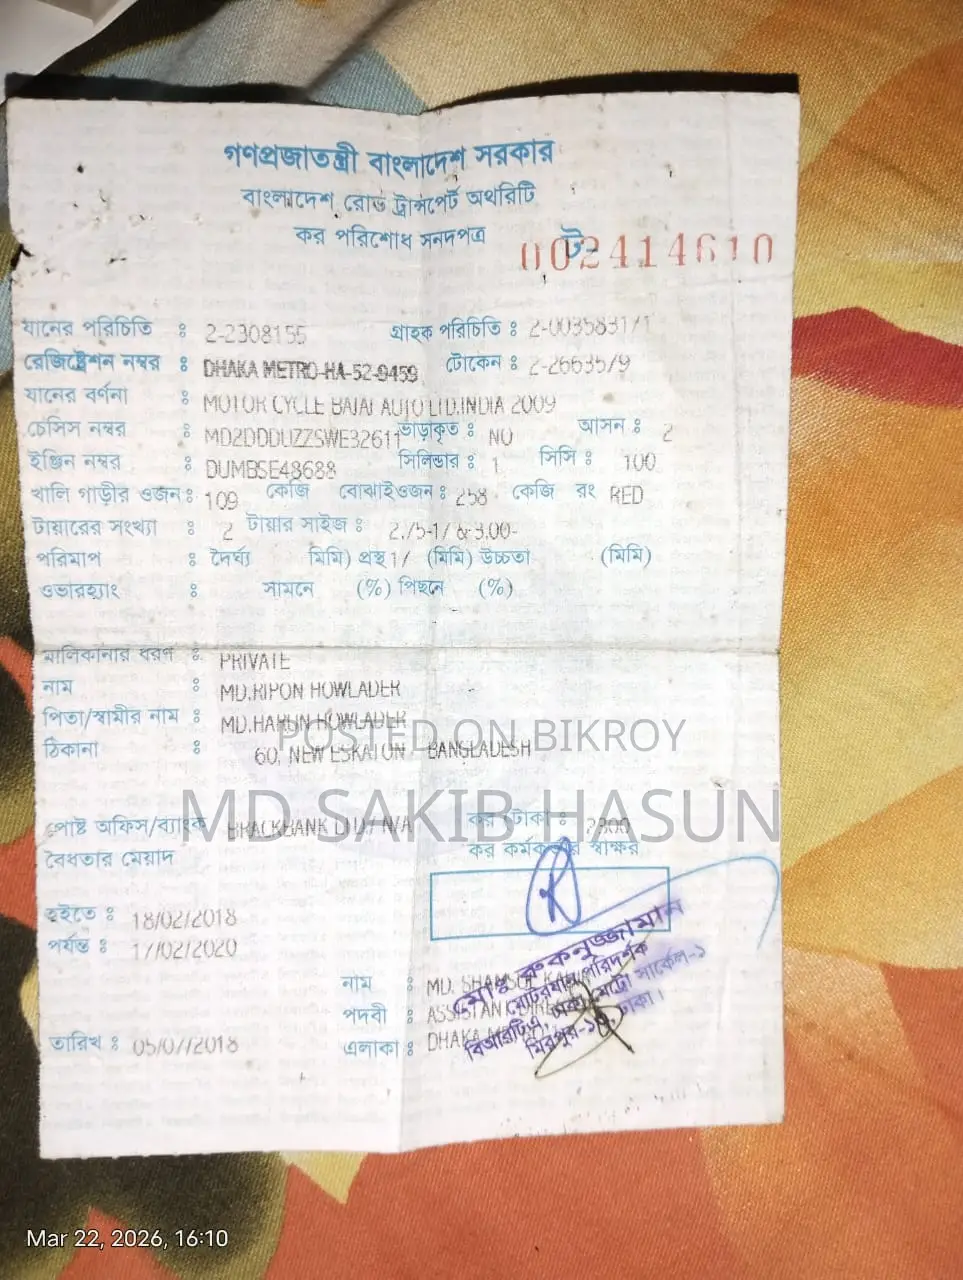 গণপ্রজাতন্ত্রী বাংলাদেশ সরকার
বাংলাদেশ রোড ট্রান্সপোর্ট অথরিটি
কর পরিশোধ সনদপত্র
ট- 002414610
যানের পরিচিতি : 2-2308155 গ্রাহক পরিচিতি : 2-003583171
রেজিষ্ট্রেশন নম্বর : DHAKA METRO-HA-52-9459 টোকেন : 2-2663579
যানের বর্ণনা : MOTOR CYCLE BAJAJ AUTO LTD.INDIA 2009
চেসিস নম্বর : MD2DDDUZZSWE32611 ভাড়াকৃত : NO আসন : 2
ইঞ্জিন নম্বর : DUMBSE48688 সিলিন্ডার : 1 সিসি : 100
খালি গাড়ীর ওজন : 109 কেজি বোঝাইওজন : 258 কেজি রং RED
টায়ারের সংখ্যা : 2 টায়ার সাইজ : 2.75-17 & 3.00-
পরিমাপ : দৈর্ঘ্য মিমি) প্রস্থ 17 (মিমি) উচ্চতা (মিমি)
ওভারহ্যাং : সামনে (%) পিছনে (%)
মালিকানার ধরণ : PRIVATE
নাম : MD.RIPON HOWLADER
পিতা/স্বামীর নাম : MD.HARUN HOWLADER
ঠিকানা : 60, NEW ESKATON BANGLADESH
POSTED ON BIKROY
MD SAKIB HASUN
পোষ্ট অফিস/ব্যাংক BRACKBANK LTD./N/A কর টাকা : 2300
বৈধতার মেয়াদ কর কর্মকর্তার স্বাক্ষর
হইতে : 18/02/2018
পর্যন্ত : 17/02/2020
মোঃ রুকনুজ্জামান
মোটরযান পরিদর্শক
বিআরটিএ, ঢাকা মেট্রো সার্কেল-১
মিরপুর-১৩, ঢাকা।
নাম : MD. SHAMSUL KABIR
পদবী : ASSISTANT DIRE
তারিখ : 05/07/2018 এলাকা : DHAKA
Mar 22, 2026, 16:10